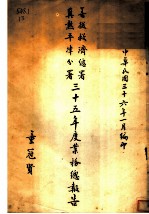 中華民國三十六年一月編印
善後救濟總署
冀熱平津分署
三十五年度業務總報告
童冠賢